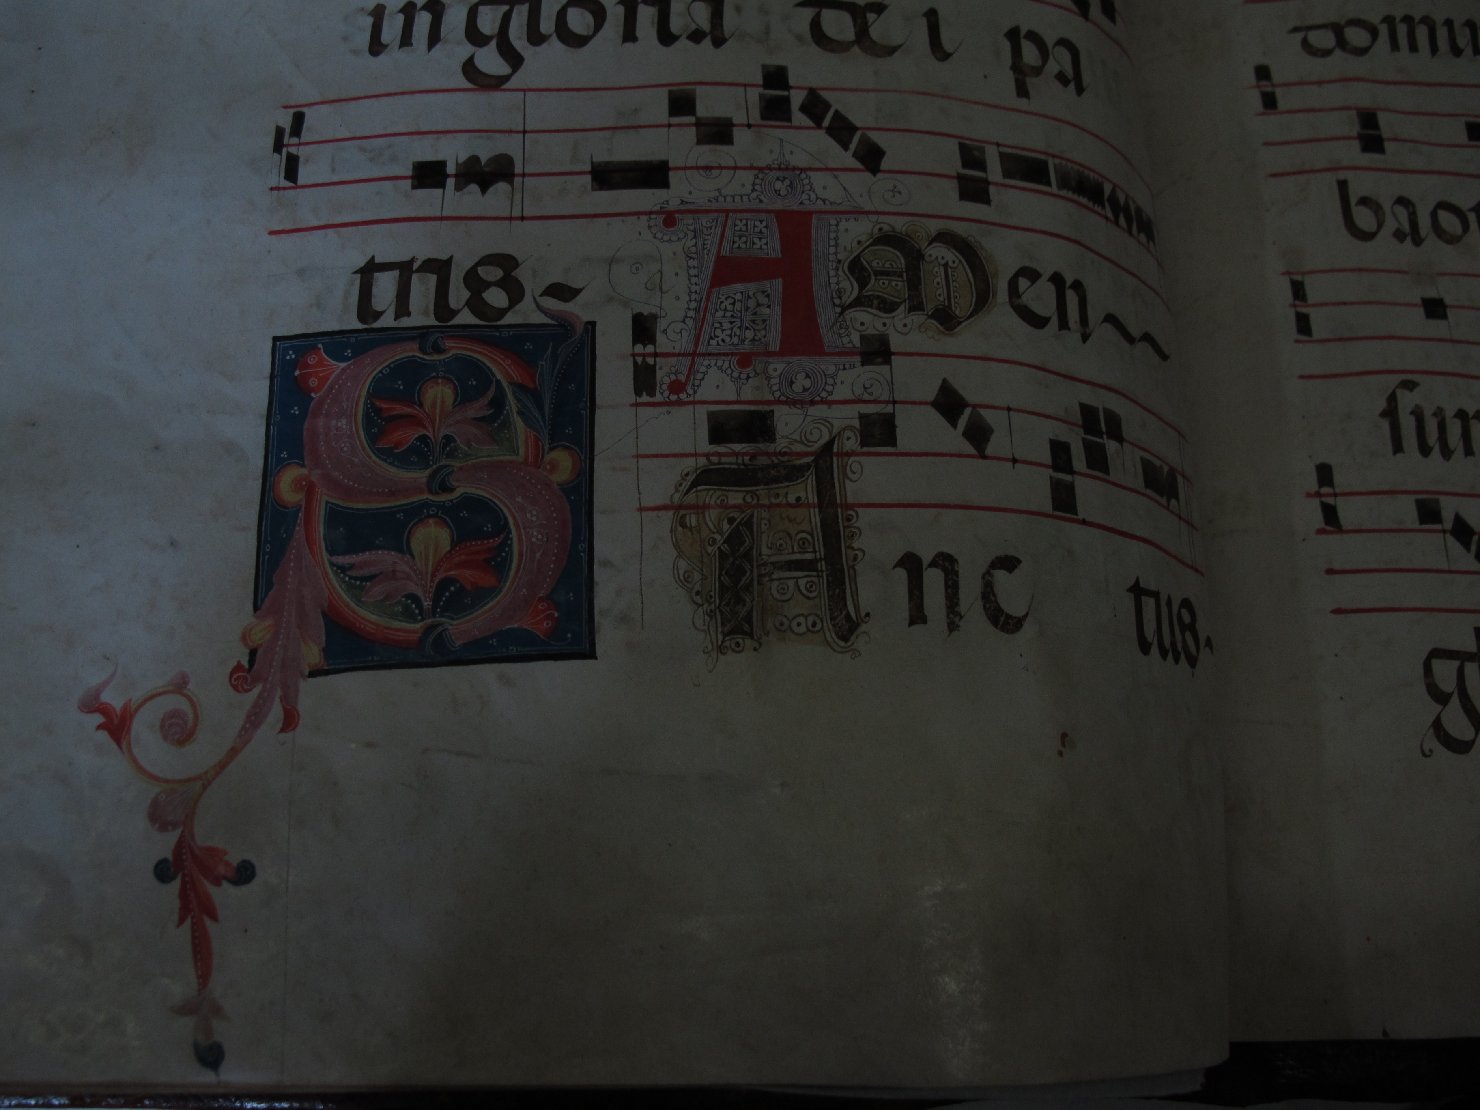 in gloria dei pa
tris ~ AMen ~~
SAnc tus.
domi
baot
sun
g